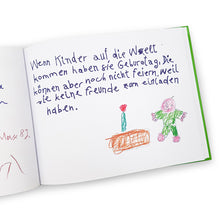 Wenn Kinder auf die Welt
kommen haben sie Geburtstag. Die
können aber noch nicht feiern, weil
sie keine Freunde zum einladen
haben.